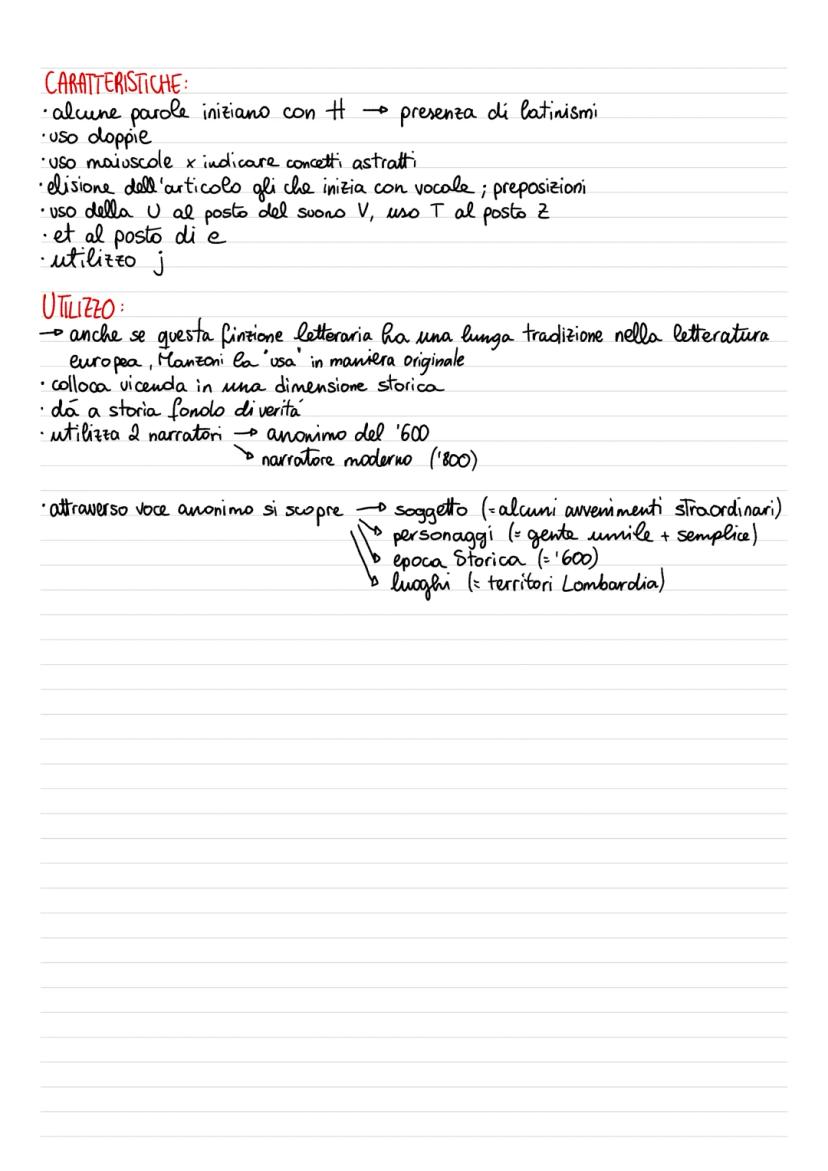 CARATTERISTICHE:
· alcune parole iniziano con H → presenza di latinismi
· uso doppie
· uso maiuscole x indicare concetti astratti
· elisione dell'articolo gli che inizia con vocale ; preposizioni
· uso della U al posto del suono V, uso T al posto Z
· et al posto di e
· utilizzo j
UTILIZZO:
→ anche se questa finzione letteraria ha una lunga tradizione nella letteratura
europea, Manzoni la "usa" in maniera originale
· colloca vicenda in una dimensione storica
· dá a storia fondo di veritá
· utilizza 2 narratori → anonimo del '600
↘ narratore moderno ('800)
· attraverso voce anonimo si scopre → soggetto (= alcuni avvenimenti straordinari)
↘ personaggi (= gente umile + semplice)
↘ epoca Storica (= '600)
↘ luoghi (= territori Lombardia)